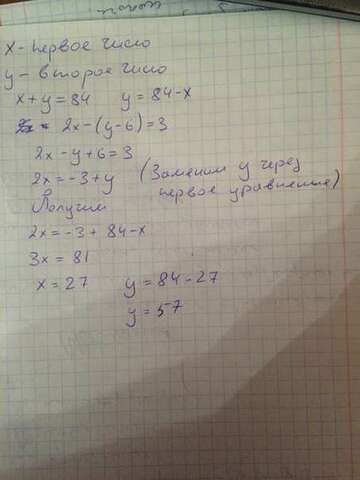 x - первое число
y - второе число
x + y = 84 y = 84 - x
2x - (y - 6) = 3
2x - y + 6 = 3
2x = -3 + y (Заменим y через
первое уравнение)
Получим
2x = -3 + 84 - x
3x = 81
x = 27 y = 84 - 27
y = 57